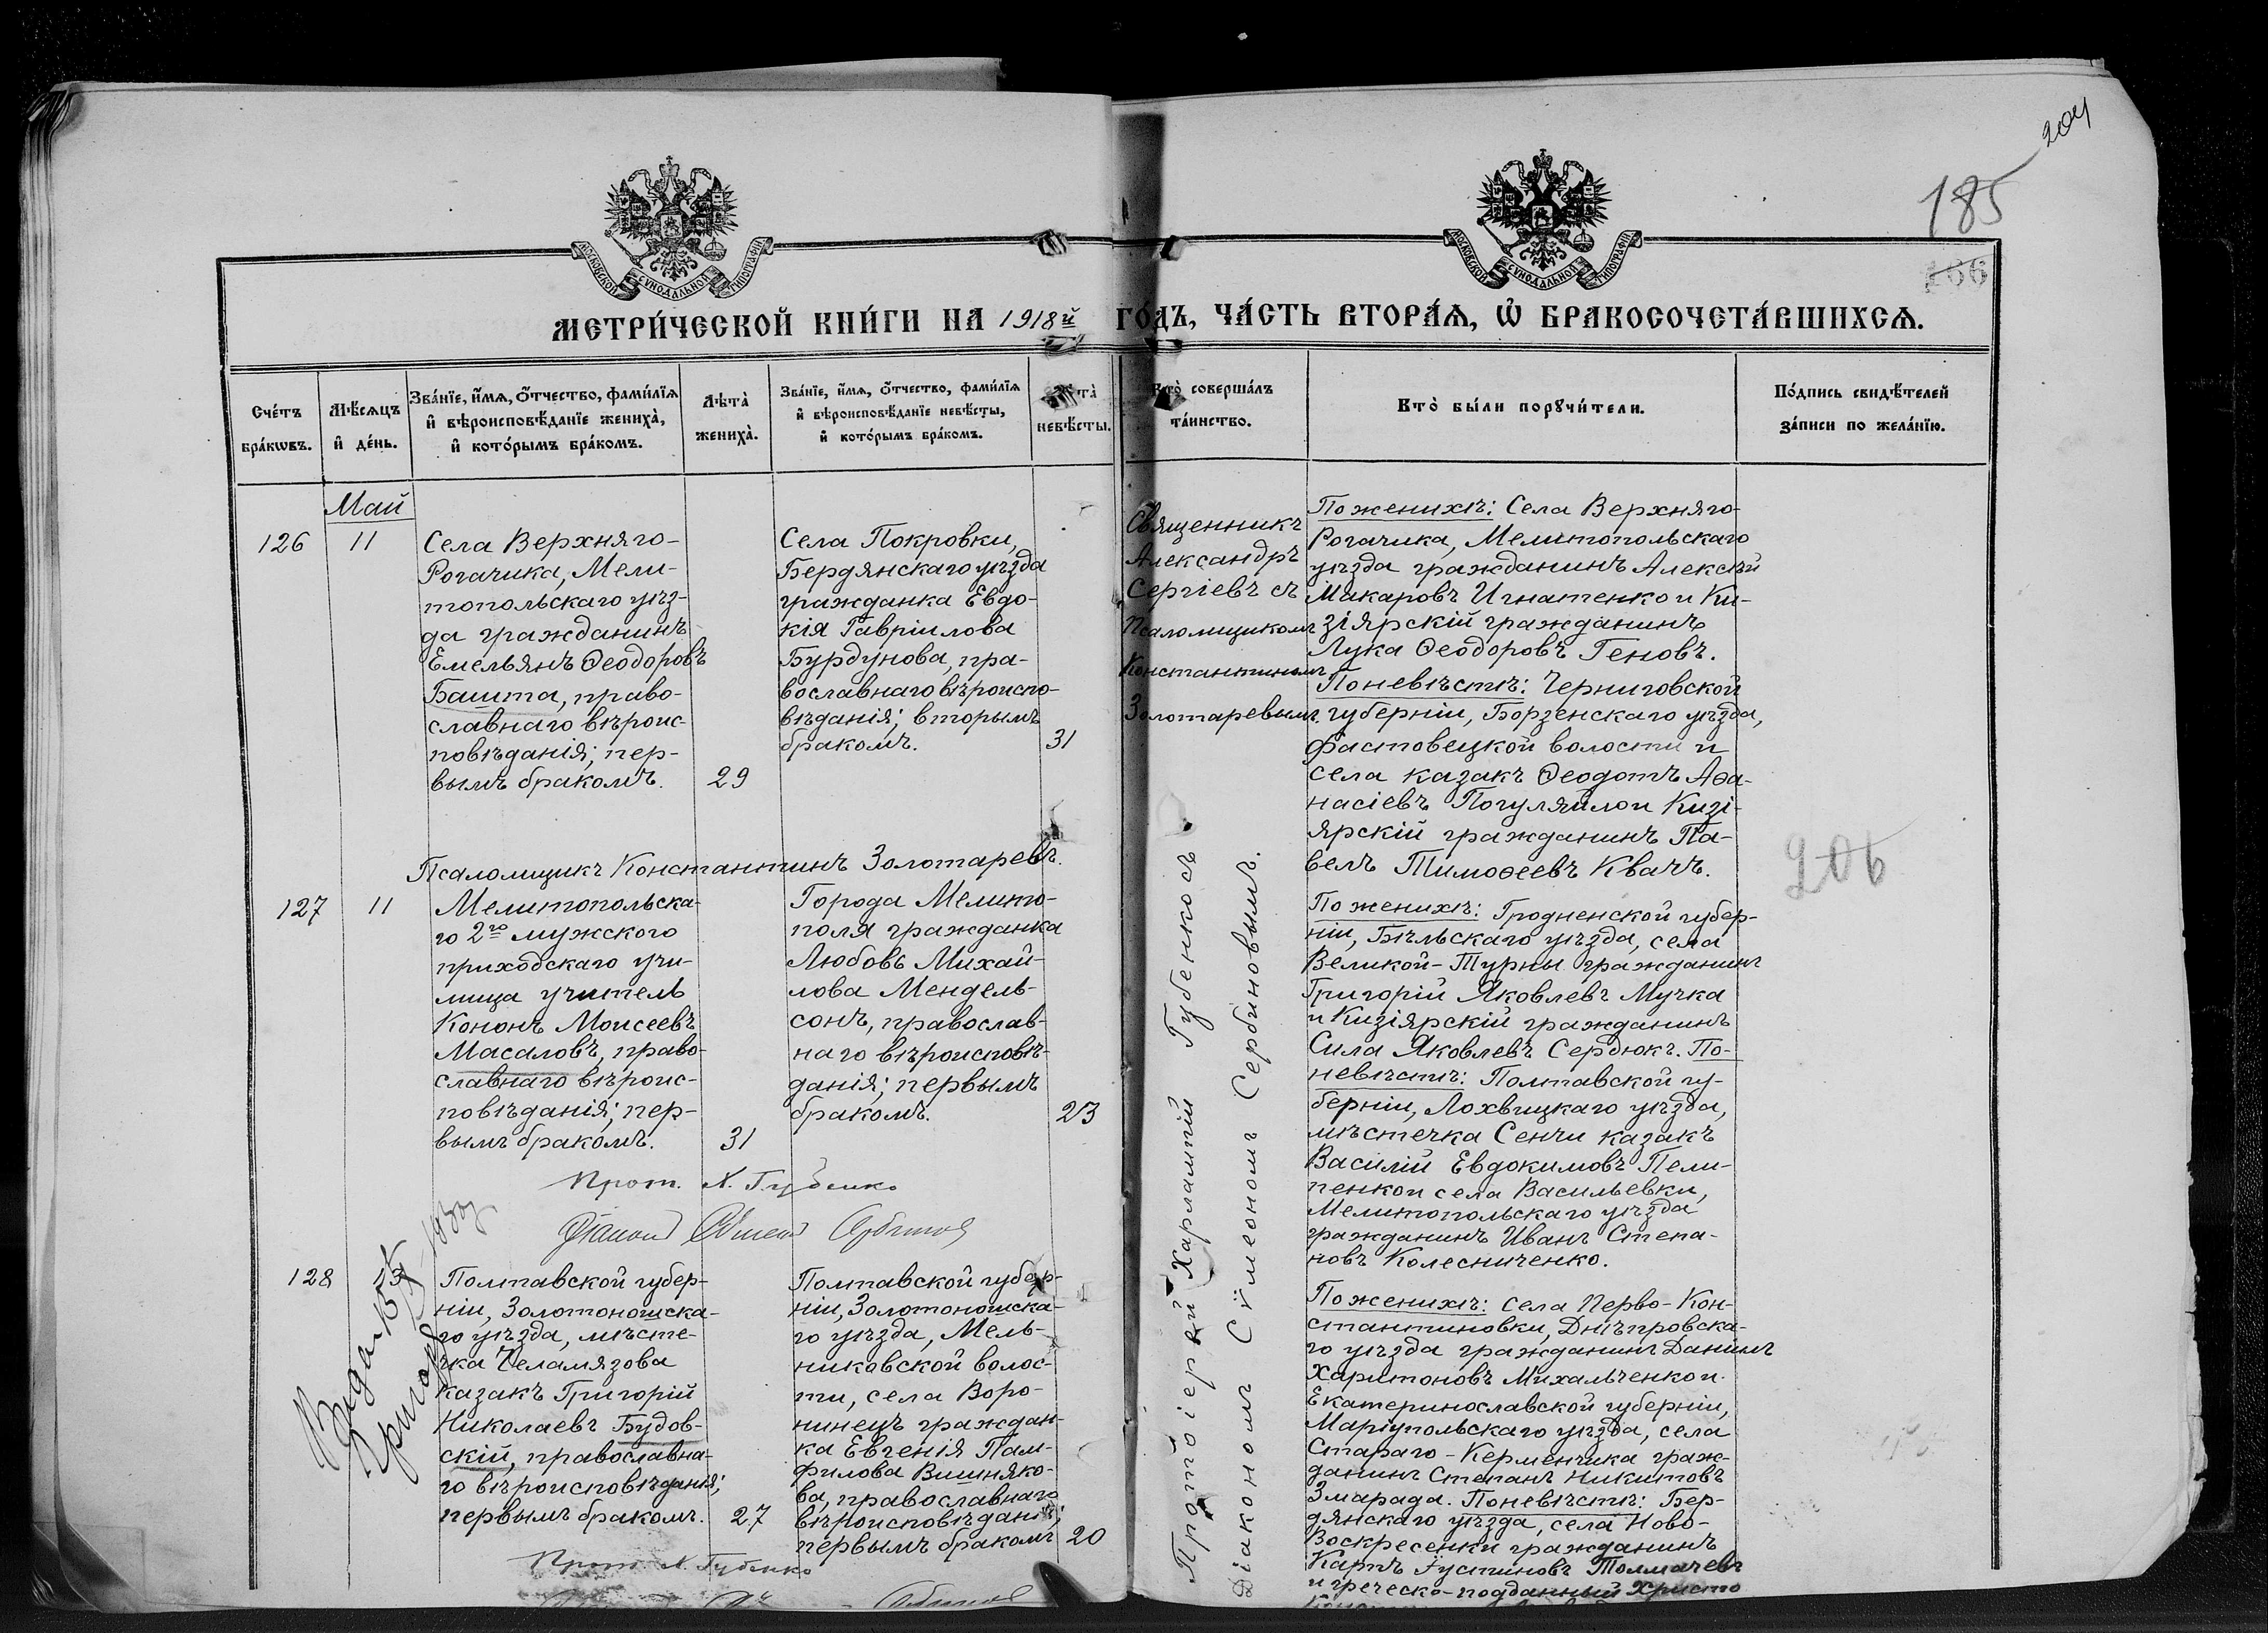 204
185
166
МОСКОВСКОЙ СѴНОДАЛЬНОЙ ТИПОГРАФІИ
МОСКОВСКОЙ СѴНОДАЛЬНОЙ ТИПОГРАФІИ
МЕТРИ́ЧЕСКОЙ КНИ́ГИ НА 1918й ГО́ДЪ, ЧА́СТЬ ВТОРА́Ѧ, Ѽ БРАКОСОЧЕТА́ВШИХСѦ.
Сче́тъ
бра́кѡвъ.
Мѣ́сѧцъ
и҆ де́нь.
Зва́нїе, и҆́мѧ, ѻ҆́тчество, фами́лїѧ
и҆ вѣроисповѣ́данїе жениха̀,
и҆ кото́рымъ бра́комъ.
Лѣта̀
жениха̀.
Зва́нїе, и҆́мѧ, ѻ҆́тчество, фами́лїѧ
и҆ вѣроисповѣ́данїе невѣ́сты,
и҆ кото́рымъ бра́комъ.
Лѣта̀
невѣ́сты.
Кто̀ соверша́лъ
та́инство.
Кто̀ бы́ли порꙋчи́тели.
По́дпись свидѣ́телей
за́писи по жела́нїю.
Май
126
11
Села Верхняго-
Рогачика, Мели-
топольскаго уѣз-
да гражданинъ
Емельянъ Ѳеодоровъ
Башта, право-
славнаго вѣроис-
повѣданія; пер-
вымъ бракомъ.
29
Села Покровки,
Бердянскаго уѣзда
гражданка Евдо-
кія Гавріилова
Бурдунова, пра-
вославнаго вѣроиспо-
вѣданія; вторымъ
бракомъ.
31
Священникъ
Александръ
Сергіевъ съ
Псаломщикомъ
Константиномъ
Золотаревымъ.
По женихѣ: Села Верхняго-
Рогачика, Мелитопольскаго
уѣзда гражданинъ Алексѣй
Макаровъ Игнатенко и Ки-
зіярскій гражданинъ
Лука Ѳеодоровъ Геновъ.
По невѣстѣ: Черниговской
губерніи, Борзенскаго уѣзда,
Фастовецкой волости и
села казакъ Ѳеодотъ Аѳа-
насіевъ Погуляйло и Кизі-
ярскій гражданинъ Па-
велъ Тимоѳеевъ Квачъ.
Псаломщикъ Константинъ Золотаревъ.
206
127
11
Мелитопольска-
го 2го мужского
приходскаго учи-
лища учитель
Кононъ Моисеевъ
Масаловъ, право-
славнаго вѣроис-
повѣданія; пер-
вымъ бракомъ.
31
Города Мелито-
поля гражданка
Любовь Михай-
лова Мендель-
сонъ, православ-
наго вѣроисповѣ-
данія; первымъ
бракомъ.
23
Протоіерей Харлампій Губенко съ
Діакономъ Сѵмеономъ Сербиновымъ.
По женихѣ: Гродненской губер-
ніи, Бѣльскаго уѣзда, села
Великой-Турны гражданинъ
Григорій Яковлевъ Мучка
и Кизіярскій гражданинъ
Сила Яковлевъ Сердюкъ. По-
невѣстѣ: Полтавской гу-
берніи, Лохвицкаго уѣзда,
мѣстечка Сенчи казакъ
Василій Евдокимовъ Пели-
пенко и села Васильевки,
Мелитопольскаго уѣзда
гражданинъ Иванъ Степа-
новъ Колесниченко.
Прот. Х. Губенко
Діаконъ
128
Полтавской губер-
ніи, Золотоношска-
го уѣзда, мѣсте-
чка Гелмязова
казакъ Григорій
Николаевъ Будов-
скій, православна-
го вѣроисповѣданія;
первымъ бракомъ.
27
Полтавской губер-
ніи, Золотоношска-
го уѣзда, Мель-
никовской волос-
ти, села Воро-
нинецъ граждан-
ка Евгенія Пам-
филова Вишняко-
ва, православнаго
вѣроисповѣданія;
первымъ бракомъ
20
По женихѣ: села Перво-Кон-
стантиновки, Днѣпровска-
го уѣзда гражданинъ Даніилъ
Харитоновъ Михальченко и
Екатеринославской губерніи,
Маріупольскаго уѣзда, села
Стараго-Керменчика граж-
данинъ Степанъ Никитовъ
Змарада. По невѣстѣ: Бер-
дянскаго уѣзда, села Ново-
Воскресенки гражданинъ
Карпъ Іустиновъ Толмачевъ
и греческо-подданный Христо
Прот. Х. Губенко